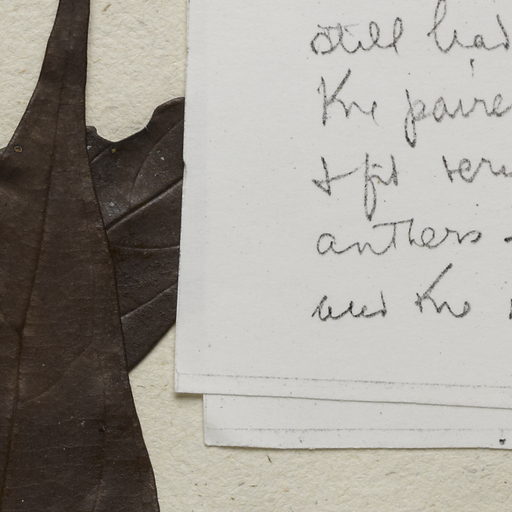 still had
the paire
& fit
anthers -
and the